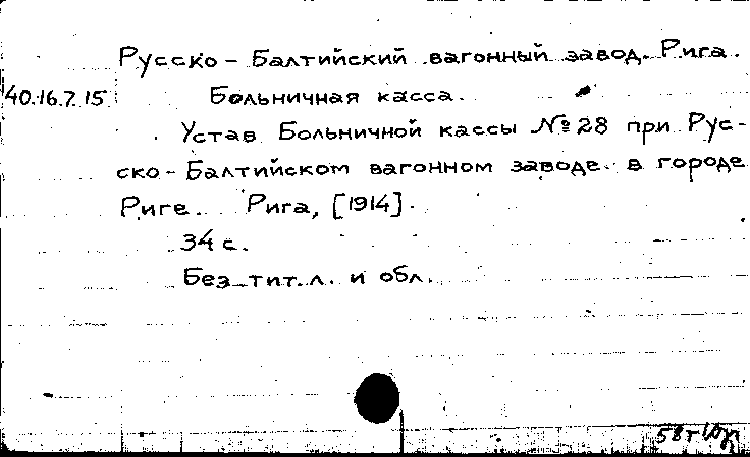 Русско-Балтийский вагонный завод. Рига.
40.16.7.15 Больничная касса.
Устав Больничной кассы № 28 при Рус-
ско-Балтийском вагонном заводе в городе
Риге. Рига, [1914].
34 с.
Без тит. л. и обл.